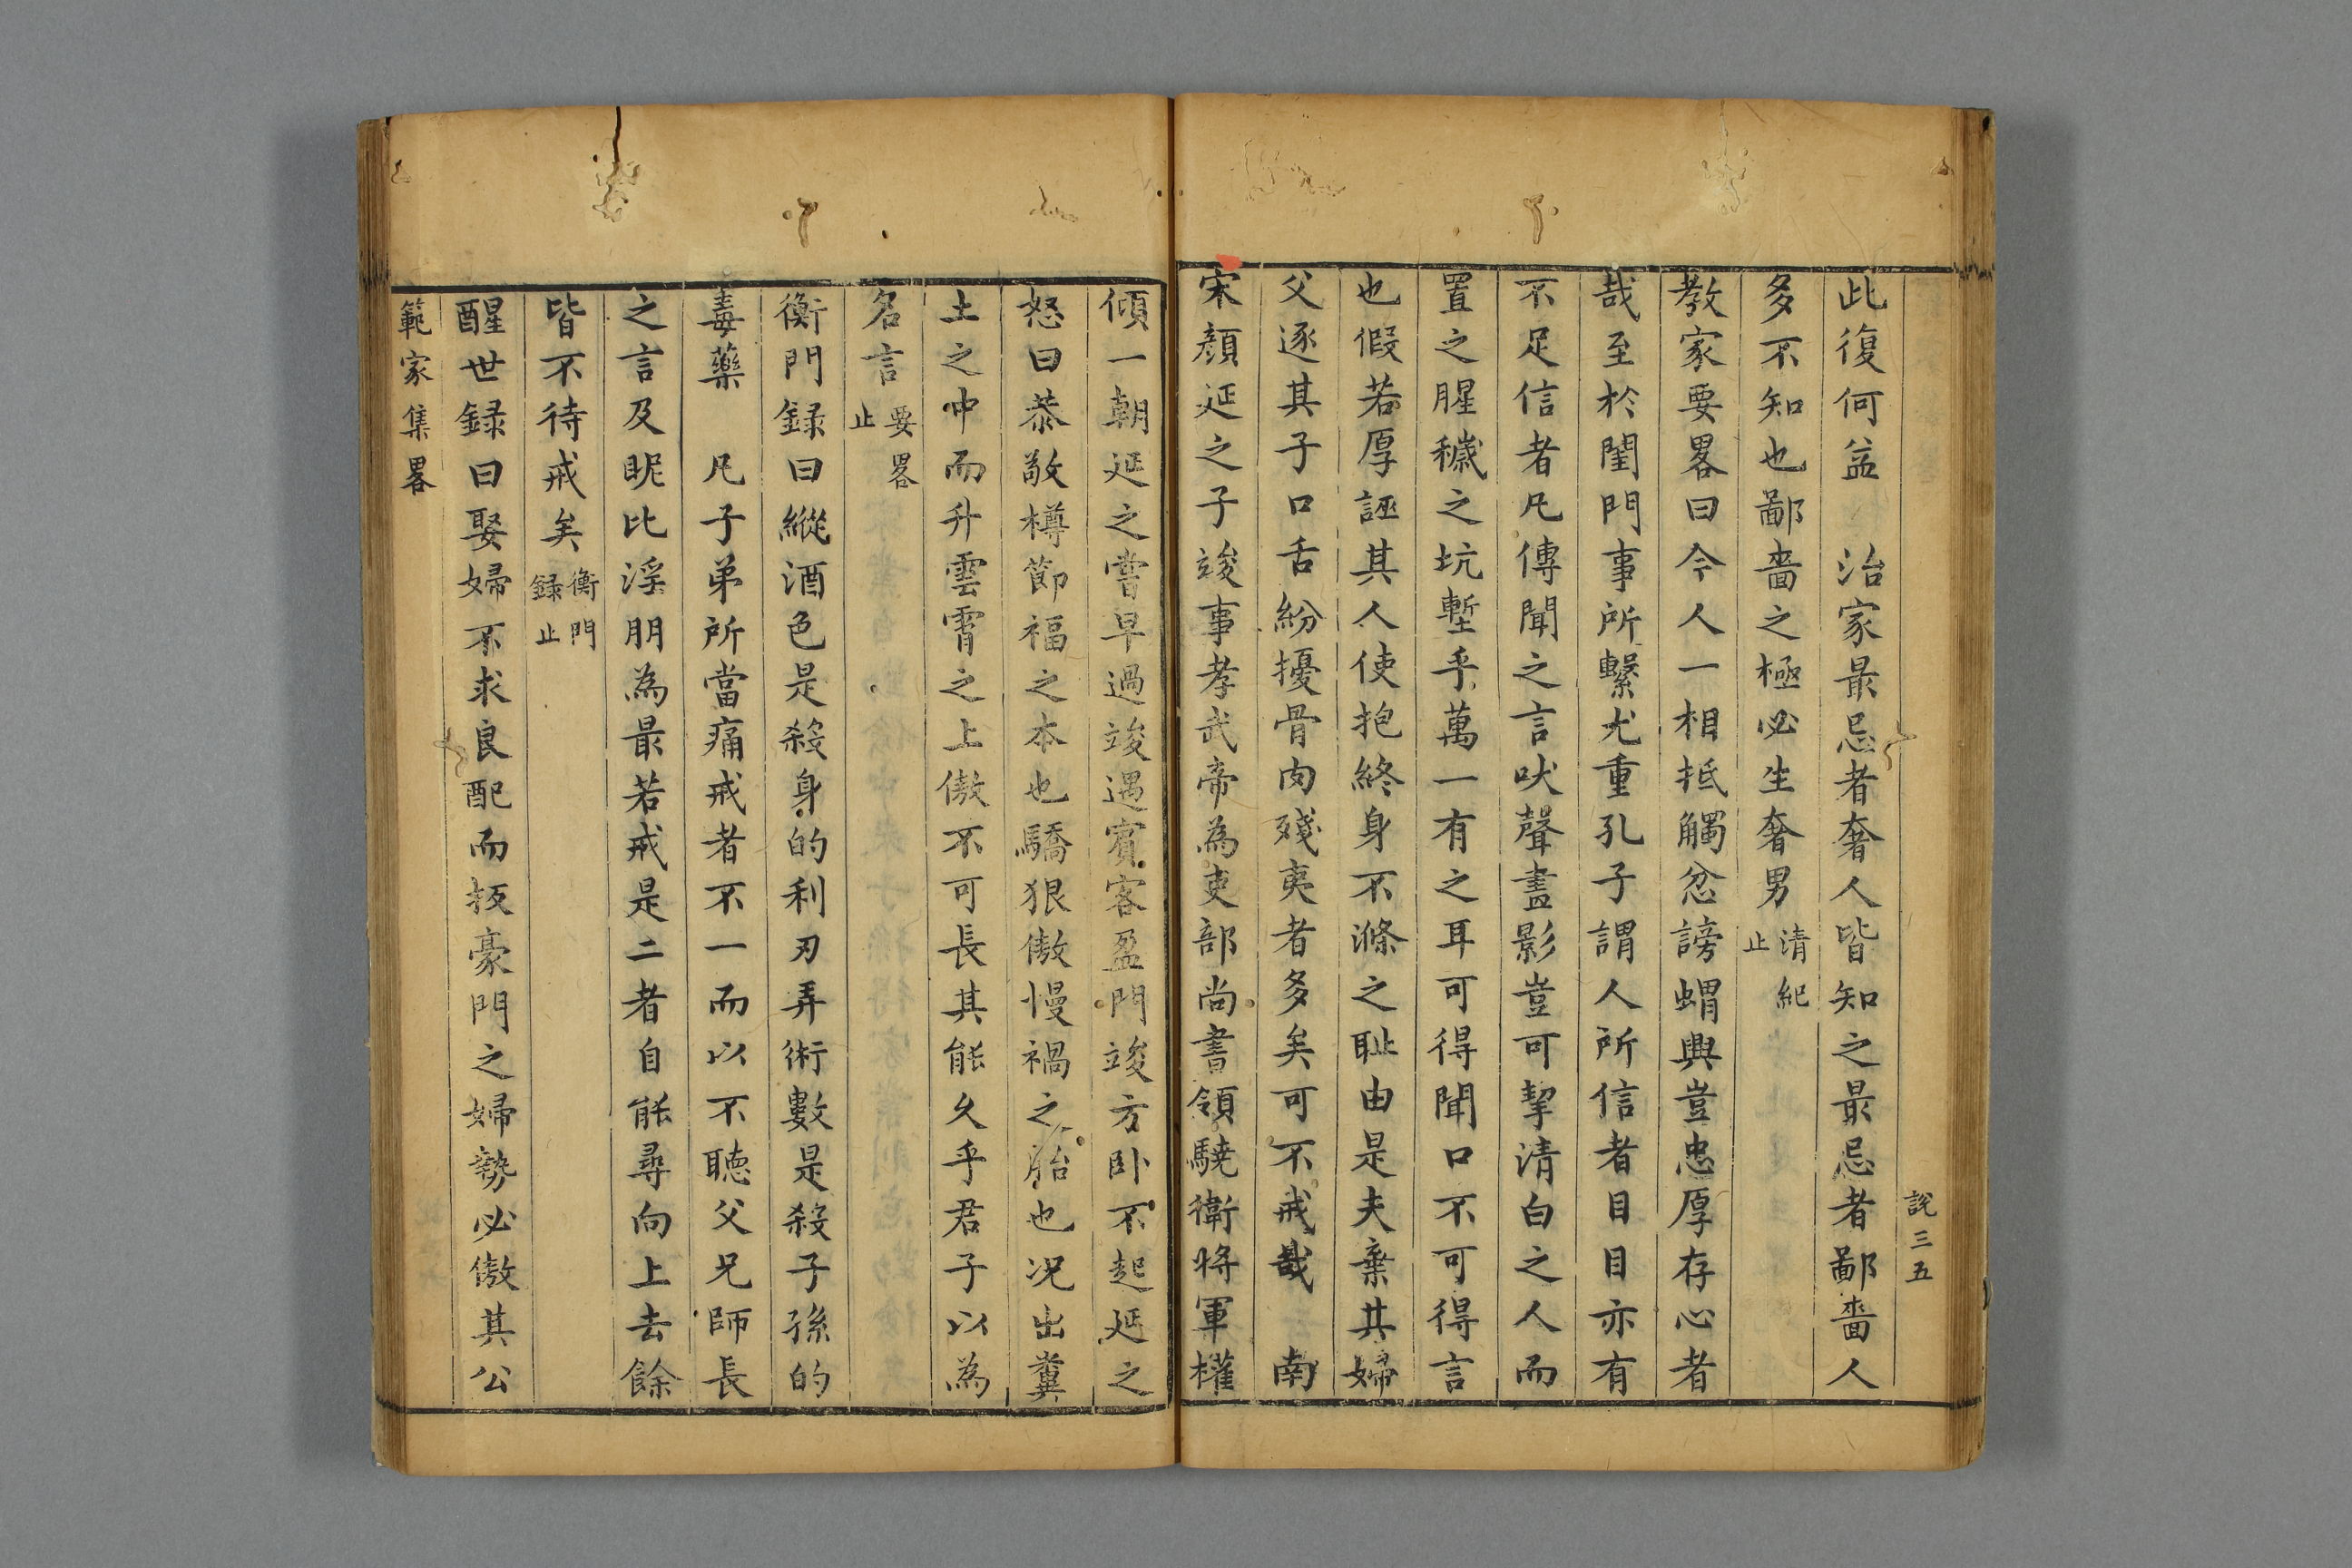 說三五
此復何益　治家最忌者奢人皆知之最忌者鄙嗇人
多不知也鄙嗇之極必生奢男清紀止
教家要畧曰今人一相抵觸忿謗蝟興豈忠厚存心者
哉至於閨門事所繫尤重孔子謂人所信者目目亦有
不足信者凡傳聞之言吠聲晝影豈可挈清白之人而
置之腥穢之坑塹乎萬一有之耳可得聞口不可得言
也假若厚誣其人使抱終身不滌之耻由是夫棄其婦
父逐其子口舌紛擾骨肉殘夷者多矣可不戒哉　南
宋顔延之子竣事孝武帝為吏部尚書領驍衛將軍權
傾一朝延之嘗早過竣遇賓客盈門竣方卧不起延之
怒曰恭敬樽節福之本也驕狠傲慢禍之胎也况出糞
土之中而升雲霄之上傲不可長其能久乎君子以為
名言要畧止
衡門録曰縱酒色是殺身的利刃弄術數是殺子孫的
毒藥　凡子弟所當痛戒者不一而以不聽父兄師長
之言及眤比淫朋為最若戒是二者自能尋向上去餘
皆不待戒矣衡門録止
醒世録曰娶婦不求良配而扳豪門之婦勢必傲其公
範家集畧